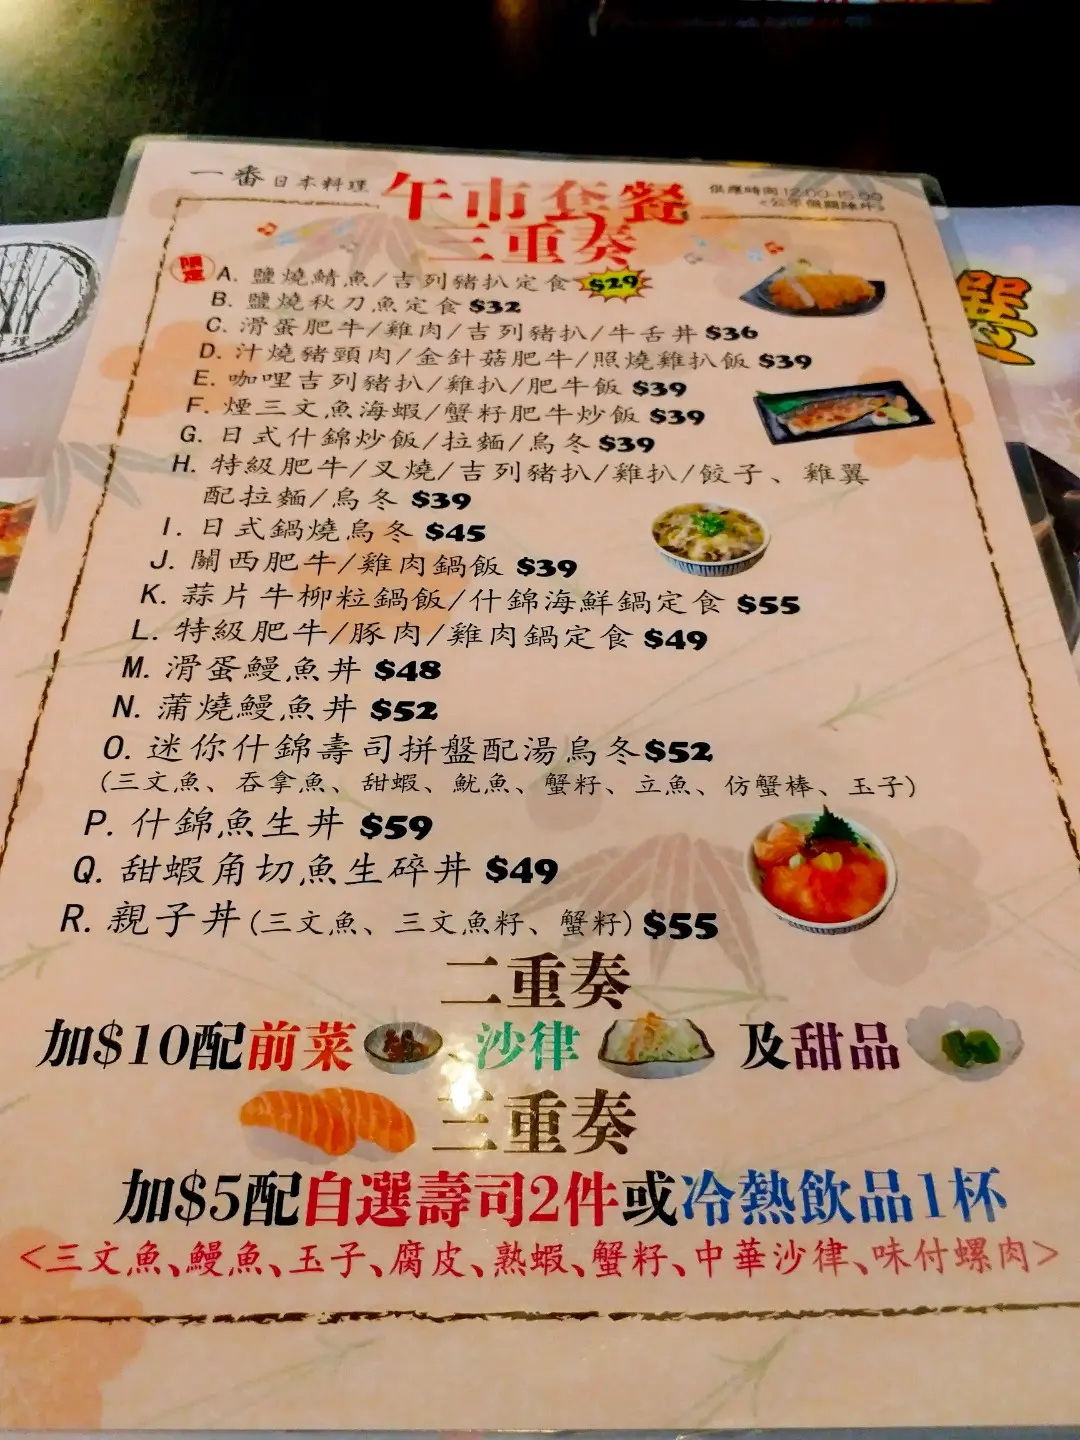 一番日本料理
午市套餐
三重奏
供應時間 12:00-15:00
<公眾假期除外>
限定
A. 鹽燒鯖魚/吉列豬扒定食 $29
B. 鹽燒秋刀魚定食 $32
C. 滑蛋肥牛/雞肉/吉列豬扒/牛舌丼 $36
D. 汁燒豬頸肉/金針菇肥牛/照燒雞扒飯 $39
E. 咖哩吉列豬扒/雞扒/肥牛飯 $39
F. 煙三文魚海蝦/蟹籽肥牛炒飯 $39
G. 日式什錦炒飯/拉麵/烏冬 $39
H. 特級肥牛/叉燒/吉列豬扒/雞扒/餃子、雞翼
配拉麵/烏冬 $39
I. 日式鍋燒烏冬 $45
J. 關西肥牛/雞肉鍋飯 $39
K. 蒜片牛柳粒鍋飯/什錦海鮮鍋定食 $55
L. 特級肥牛/豚肉/雞肉鍋定食 $49
M. 滑蛋鰻魚丼 $48
N. 蒲燒鰻魚丼 $52
O. 迷你什錦壽司拼盤配湯烏冬 $52
(三文魚、吞拿魚、甜蝦、魷魚、蟹籽、立魚、仿蟹棒、玉子)
P. 什錦魚生丼 $59
Q. 甜蝦角切魚生碎丼 $49
R. 親子丼(三文魚、三文魚籽、蟹籽) $55
二重奏
加$10配前菜、沙律及甜品
三重奏
加$5配自選壽司2件或冷熱飲品1杯
<三文魚、鰻魚、玉子、腐皮、熟蝦、蟹籽、中華沙律、味付螺肉>
理